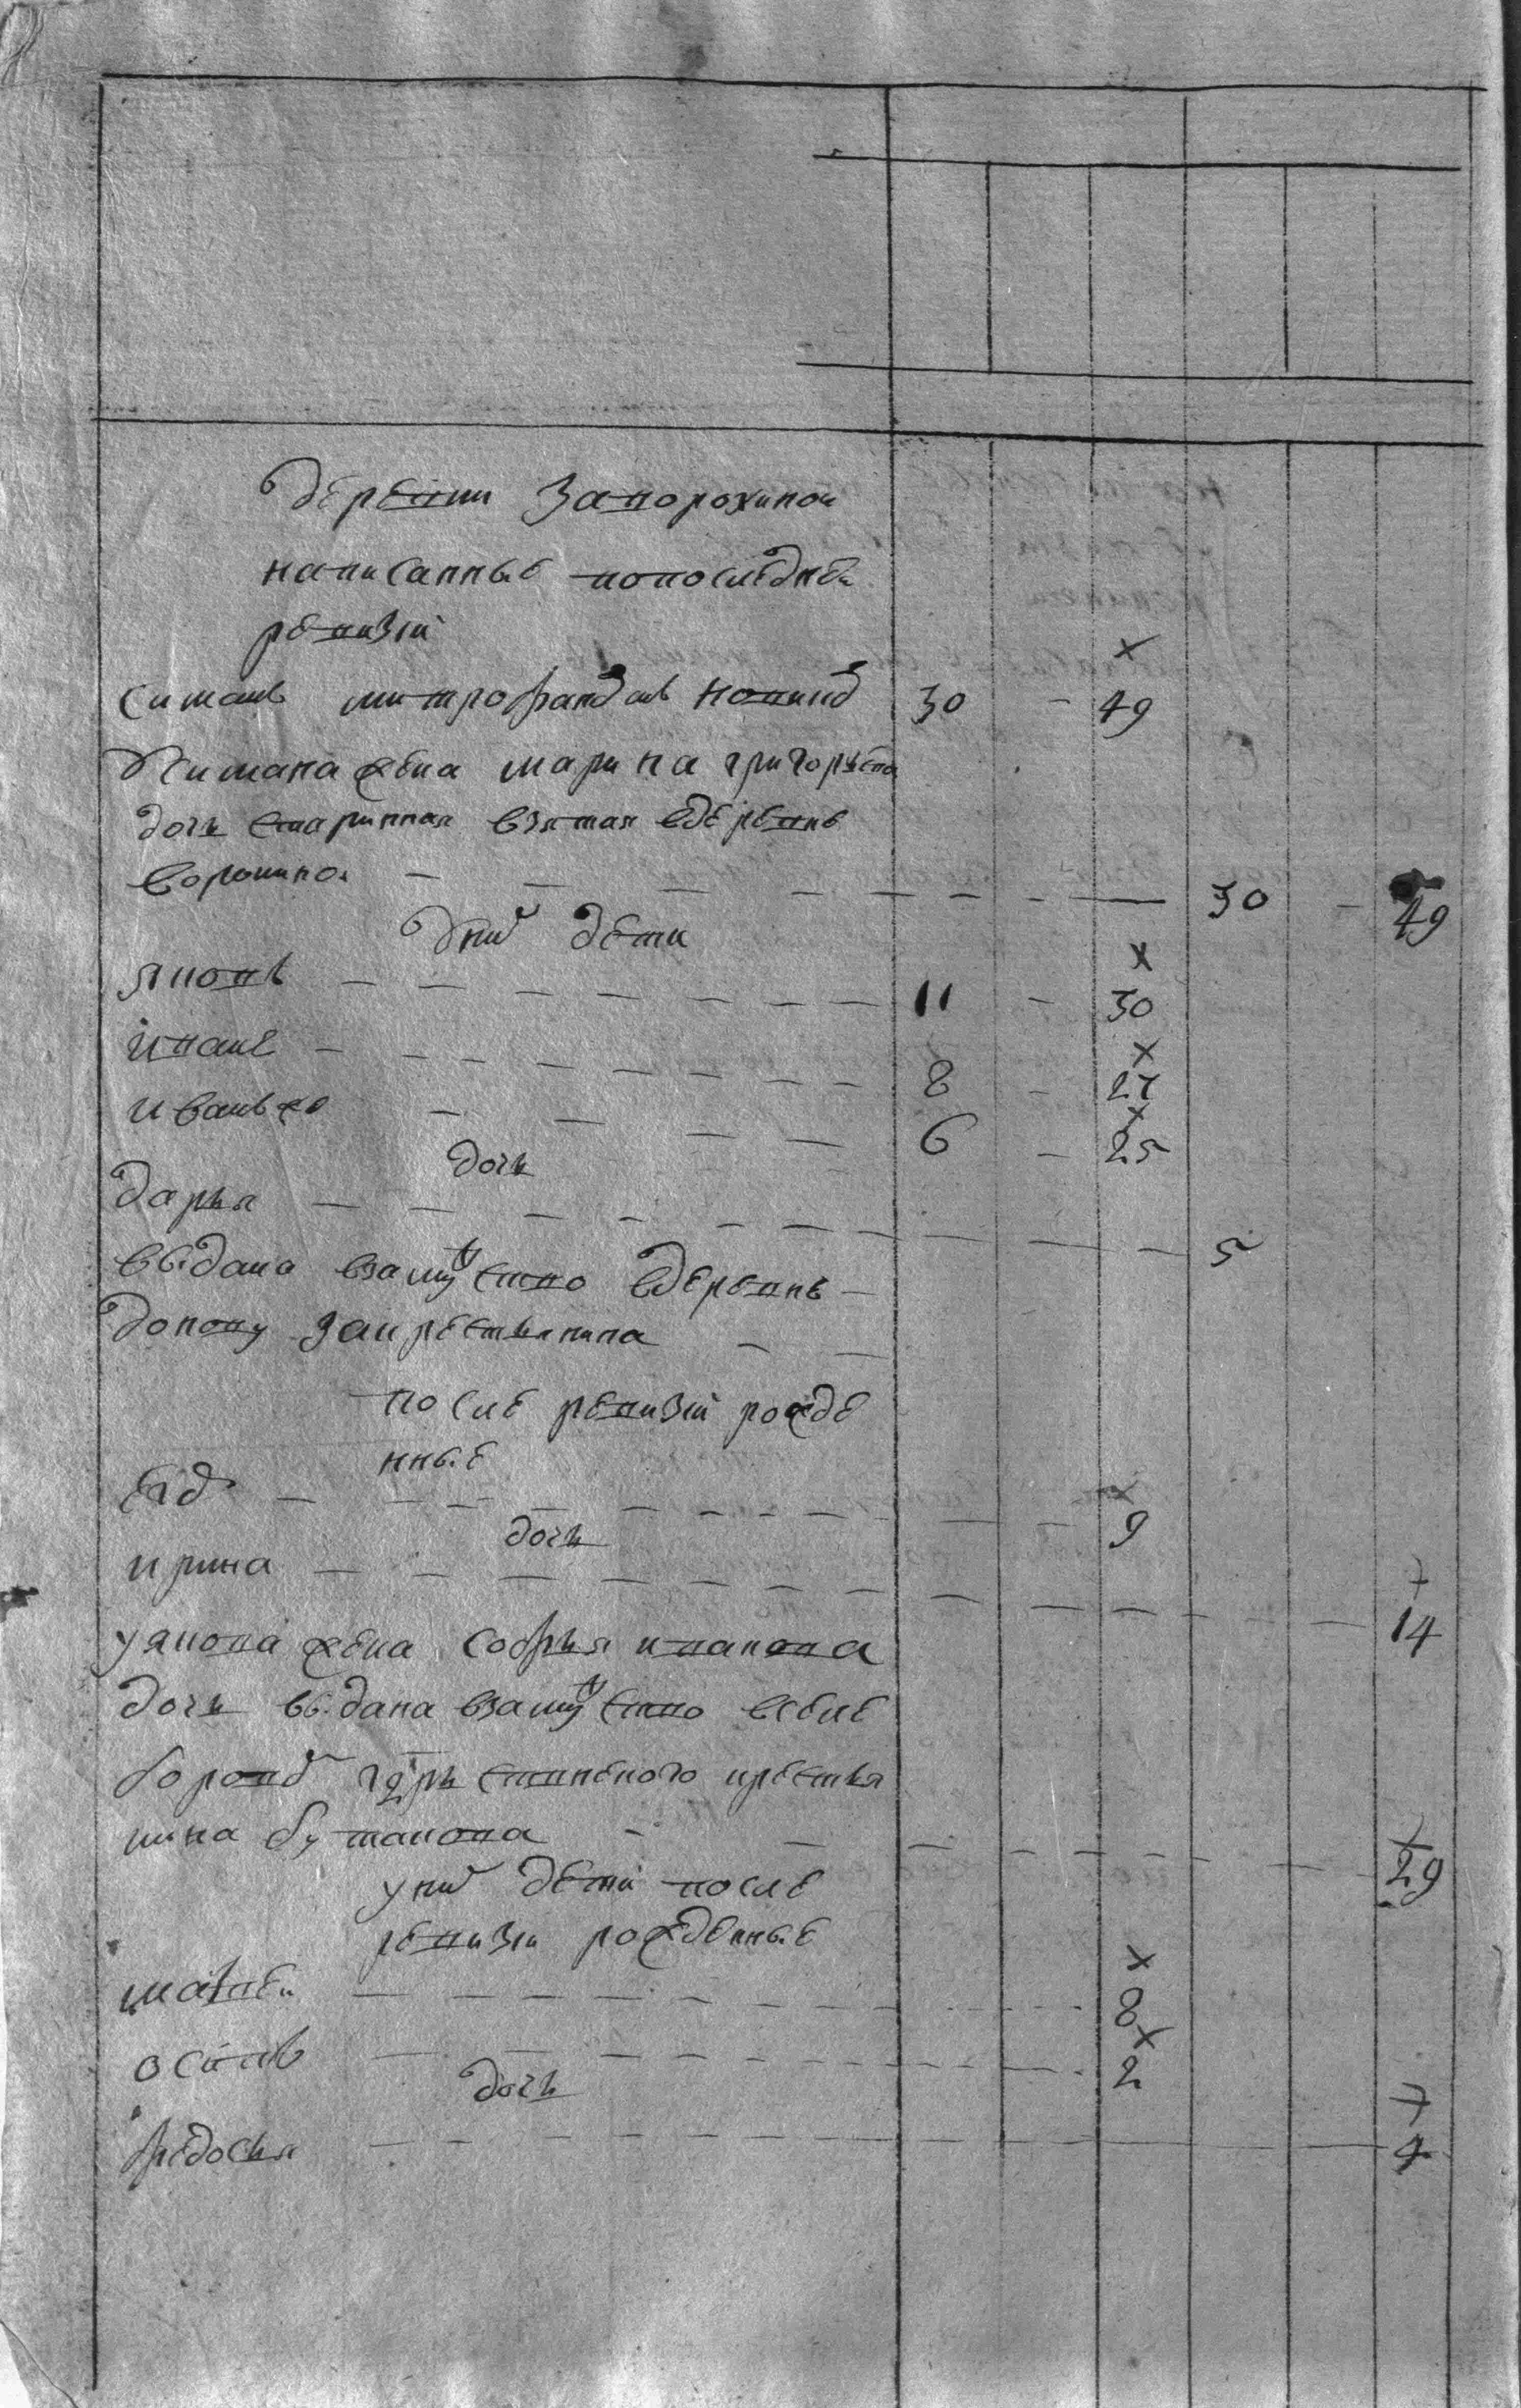 деревни Запорожиной
написанные попоследней
ревизiи
Симанъ митрофановъ 30 - 49
Симана жена марина григорьева
дочь старинная взятая вдеревне
воронино - 30 - 49
дети
яковъ - 11 - 30
иванъ - 8 - 27
иванъ же - 6 - 25
дочь
дарья - 5
выдана взамужство вдеревню
попову закрестьянина
после ревизiи рожде
нные
9
дочь
ирина - 14
уякова жена софья иванова
дочь выдана взамужство вселе
крестья
нина бутакова - 29
уних дети после
ревизiи рожденные
матвей - 8
осипъ - 2
дочь
федосья - 4